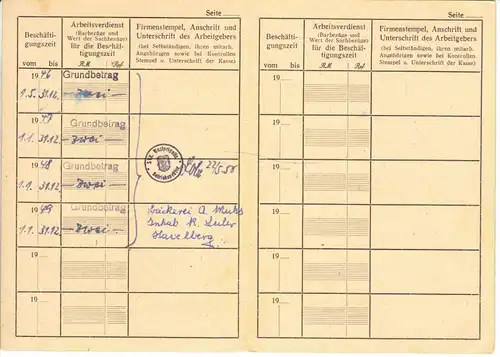 Seite
Beschäfti-
gungszeit
vom bis
Arbeitsverdienst
(Barbezüge und
Wert der Sachbezüge)
für die Beschäf-
tigungszeit
RM Rpf
Firmenstempel, Anschrift und
Unterschrift des Arbeitgebers
(bei Selbständigen, ihren mitarb.
Angehörigen sowie bei Kontrollen
Stempel u. Unterschrift der Kasse)
1946 Grundbetrag
1.5. 31.12. — zwei —
1947 Grundbetrag
1.1. 31.12. — zwei —
1948 Grundbetrag
1.1. 31.12. — zwei —
22/5.50
1949 Grundbetrag
1.1. 31.12. — zwei —
Bäckerei A.
Inhab. R.
Havelberg
19
19
Seite
Beschäfti-
gungszeit
vom bis
Arbeitsverdienst
(Barbezüge und
Wert der Sachbezüge)
für die Beschäf-
tigungszeit
RM Rpf
Firmenstempel, Anschrift und
Unterschrift des Arbeitgebers
(bei Selbständigen, ihren mitarb.
Angehörigen sowie bei Kontrollen
Stempel u. Unterschrift der Kasse)
19
19
19
19
19
19